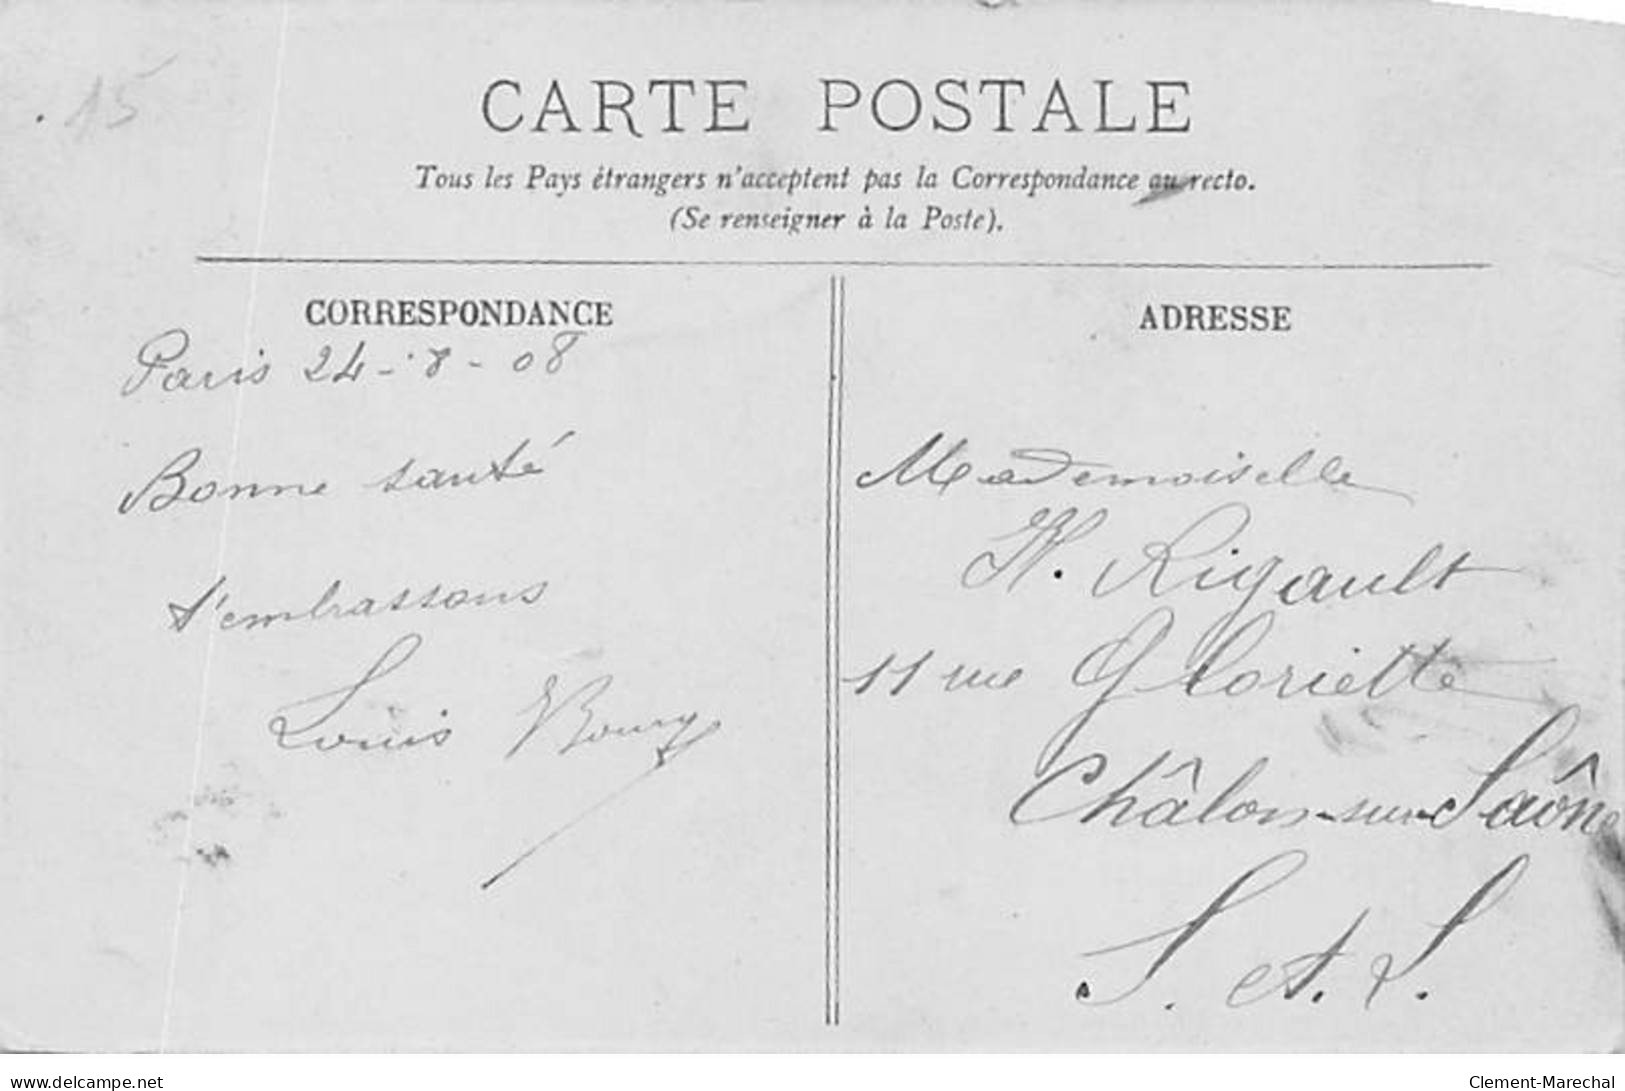 15
CARTE POSTALE
Tous les Pays étrangers n'acceptent pas la Correspondance au recto.
(Se renseigner à la Poste).
CORRESPONDANCE
Paris 24-8-08
Bonne santé
t'embrassons
Louis
ADRESSE
Mademoiselle
H. Rigault
11 rue Gloriette
Châlon-sur-Saône
S. et. L.
www.delcampe.net
Clement-Marechal